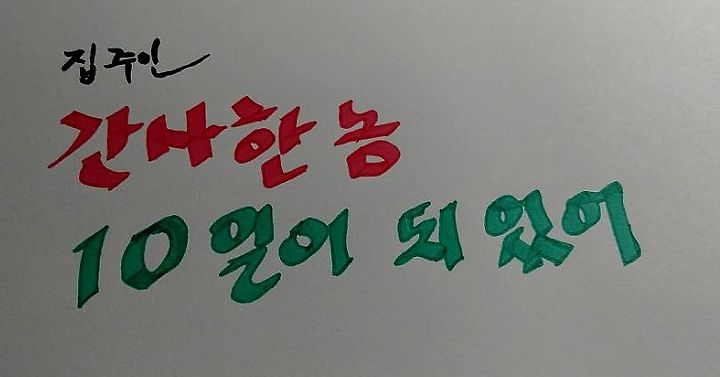 집주인
간사한 놈
10일이 되었어